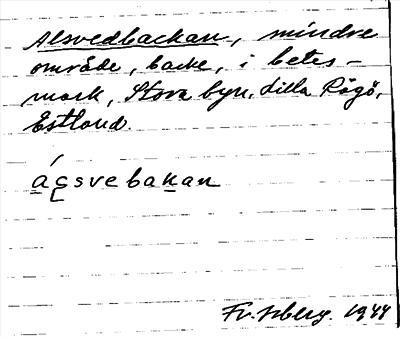 Alsvedbackan, mindre
område, backe, i betes-
mark, Stora byn, Lilla Rågö,
Estland.
ágsvebakan
1944